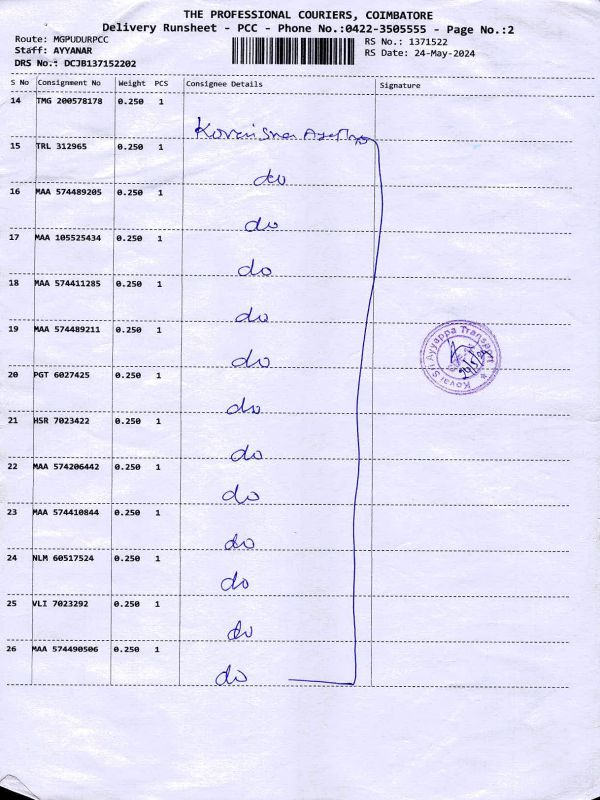 THE PROFESSIONAL COURIERS, COIMBATORE
Delivery Runsheet - PCC - Phone No.:0422-3505555 - Page No.:2
Route: MGPUDURPCC
RS No.: 1371522
Staff: AYYANAR
RS Date: 24-May-2024
DRS No.: DCJB137152202
S No Consignment No Weight PCS Consignee Details Signature
14 TMG 200578178 0.250 1
15 TRL 312965 0.250 1
do
16 MAA 574489205 0.250 1
do
17 MAA 105525434 0.250 1
do
18 MAA 574411285 0.250 1
do
19 MAA 574489211 0.250 1
do
Kovai Sri Ayyappa Transport
20 PGT 6027425 0.250 1
do
21 HSR 7023422 0.250 1
do
22 MAA 574206442 0.250 1
do
23 MAA 574410844 0.250 1
do
24 NLM 60517524 0.250 1
do
25 VLI 7023292 0.250 1
do
26 MAA 574490506 0.250 1
do